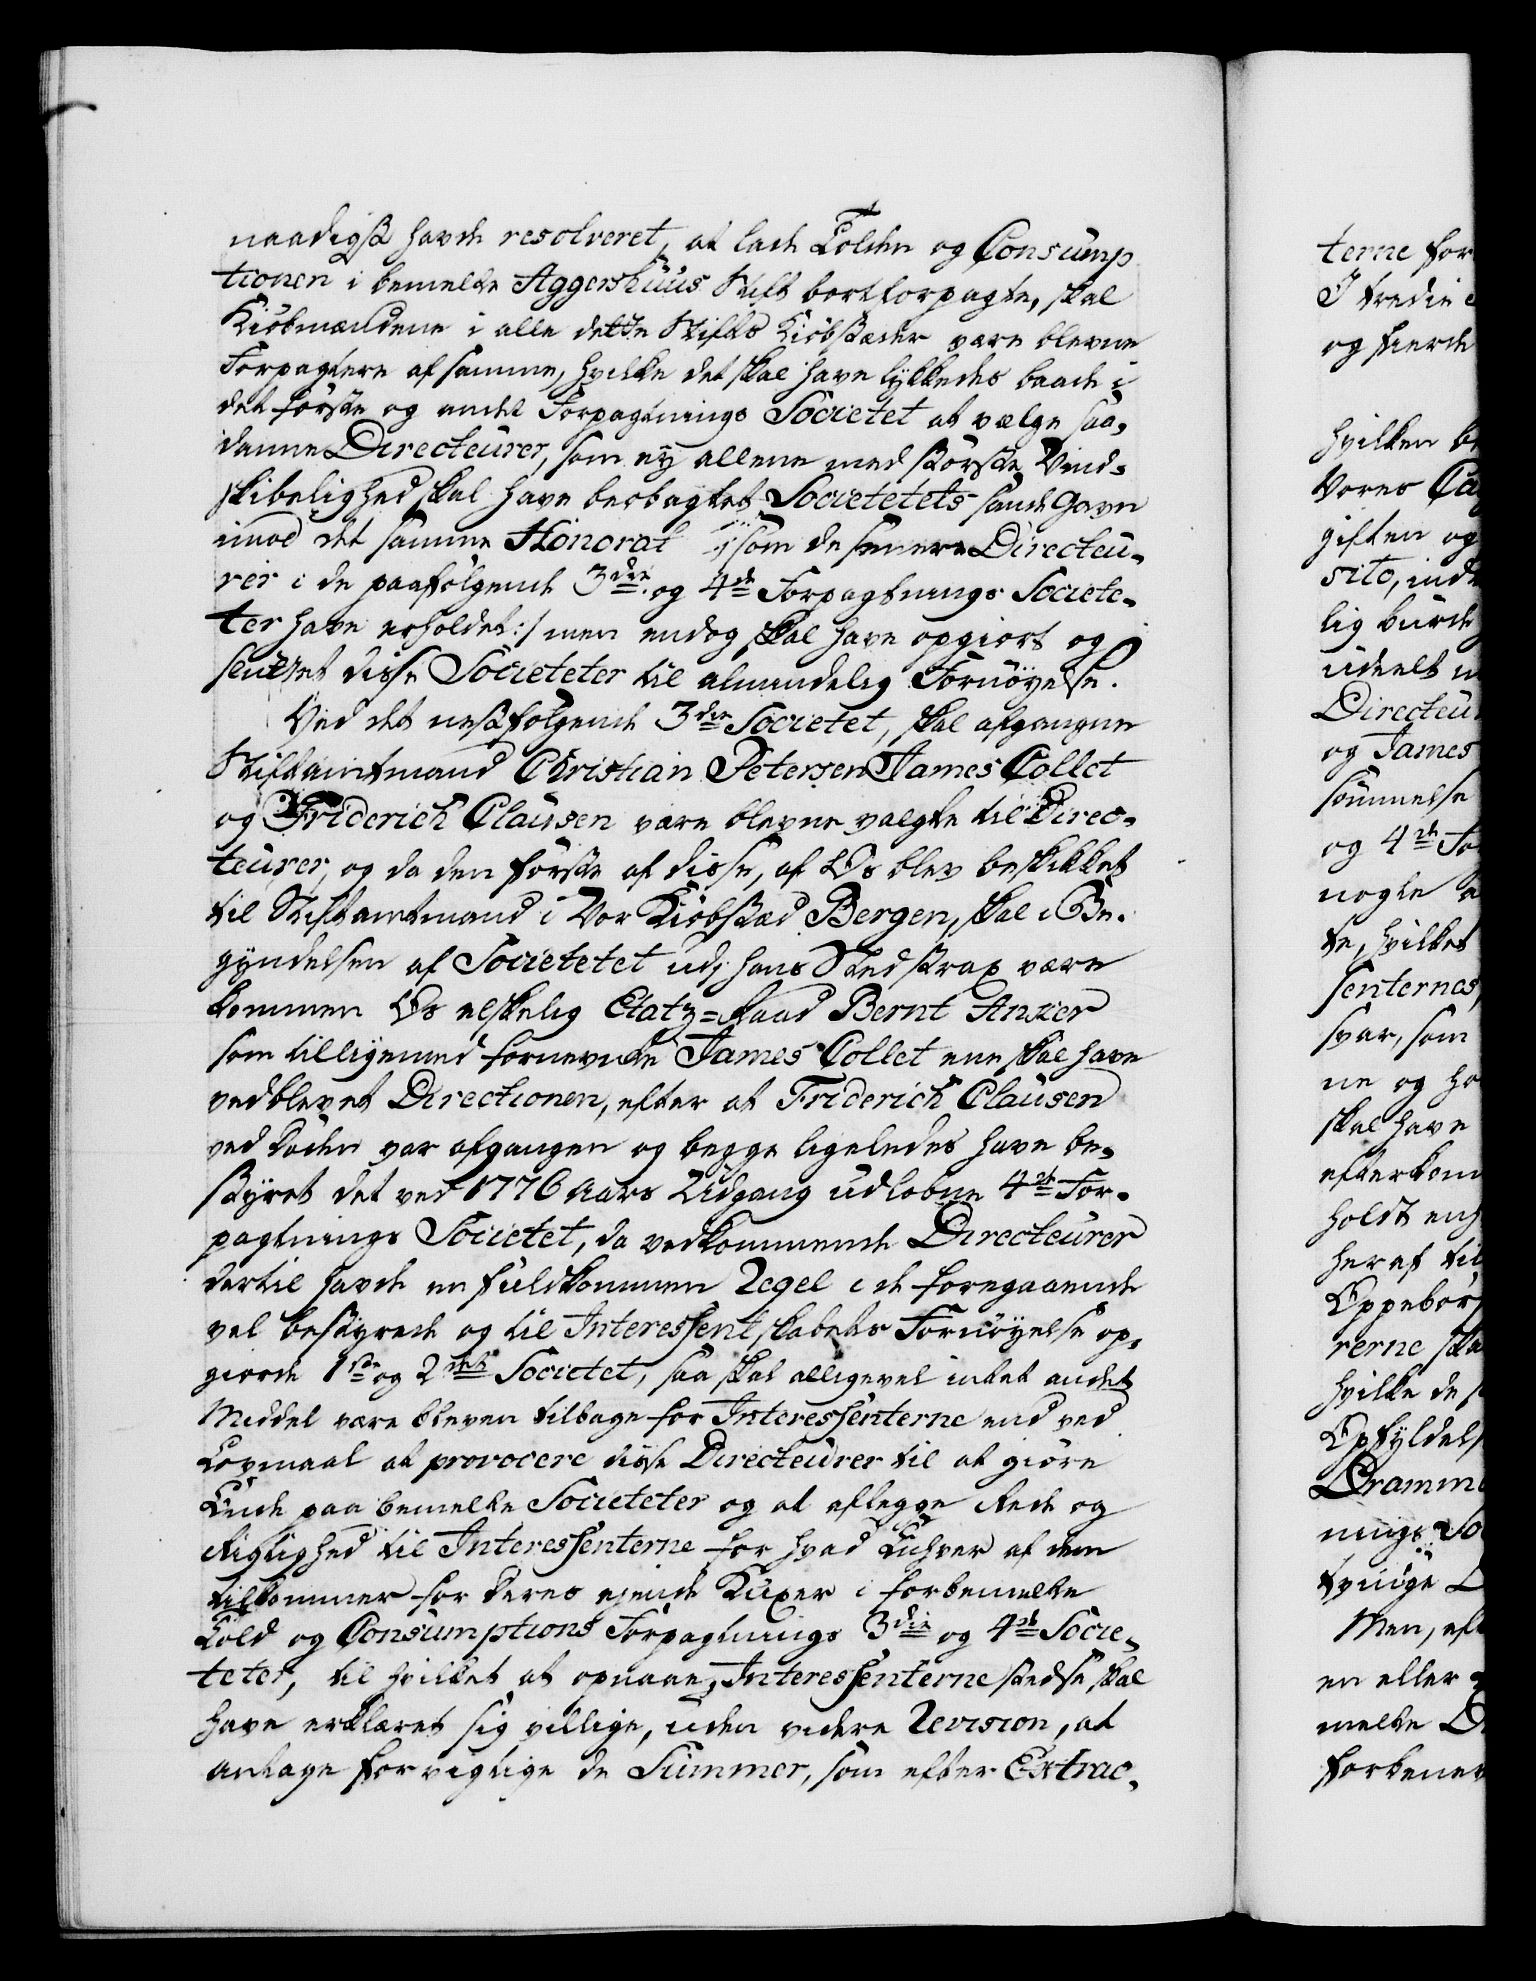 naadigst havde resolveret, at lade Tolden og Consump
tionen i bemelte Aggershuus Stift bortforpagte, skal
Kiöbmændene i alle dette Stifts Kiöbstæder være blevne
Forpagtere af samme, hvilke det skal have lykkedes baade i
det förste og andet Forpagtnings Societet at vælge saa-
danne Directeurer, som ey allene med störste Vind-
skibelighed skal have beobagtet Societetets sande Gavn
imod det samme Honorat /: som de senere Directeu-
rer i de paafölgende 3die og 4de Forpagtnings Societe-
ter have erholdet :/ men endog skal have opgiort og
sluttet disse Societeter til almindelig Fornöyelse.
Ved det nestfölgende 3die Societet, skal afgangne
Stiftamtmand Christian Petersen James Collet
og Friderich Clausen være blevne valgte til Direc-
teurer, og da den förste af disse, af Os blev beskikket
til Stiftamtmand i Vor Kiöbstæd Bergen, skal i Be-
gyndelsen af Societetet udj hans Sted strax være
kommen Os elskelig Etatz-Raad Bernt Anker
som tilligemed fornevnte James Collet ene skal have
vedblevet Directionen, efter at Friderich Clausen
ved Döden var afgangen og begge ligeledes have be-
styret det ved 1776 Aars Udgang udlobne 4de For-
pagtnings Societet, da vedkommende Directeurer
dertil havde en fuldkommen Regel i de foregaaende
vel bestyrede og til Interessentskabets Fornöyelse op-
giorde 1ste og 2det Societet, saa skal alligevel intet andet
Middel være bleven tilbage for Interessenterne end ved
Lovmaal at provocere disse Directeurer til at giöre
Ende paa bemelte Societeter og at aflegge Rede og
Rigtighed til Interessenterne for hvad Enhver af dem
tilkommer for deres ejende Kuxer i forbemelte
Told og Consumptions Forpagtnings 3die og 4de Socie-
teter, til hvilket at opnaae, Interessenterne stedse skal
have erklæret sig villige, uden videre Revision, at
antage for rigtige de Summer, som efter Extrac-
terne for
I tredie
og fierde
hvilken
Vores
giften og
sito, inde
lig burde
udeelt
Directeu
og James
sömmelse
og 4de Fo
nogle
te, hvilket
senternes
svar, som
ne og ha
skal have
efterkom
holdt
heraf til
Oppebör
rerne ska
hvilke de
Opfyldels
Dramm
nings So
tvinge
Men, eft
en eller
melte
forbenev